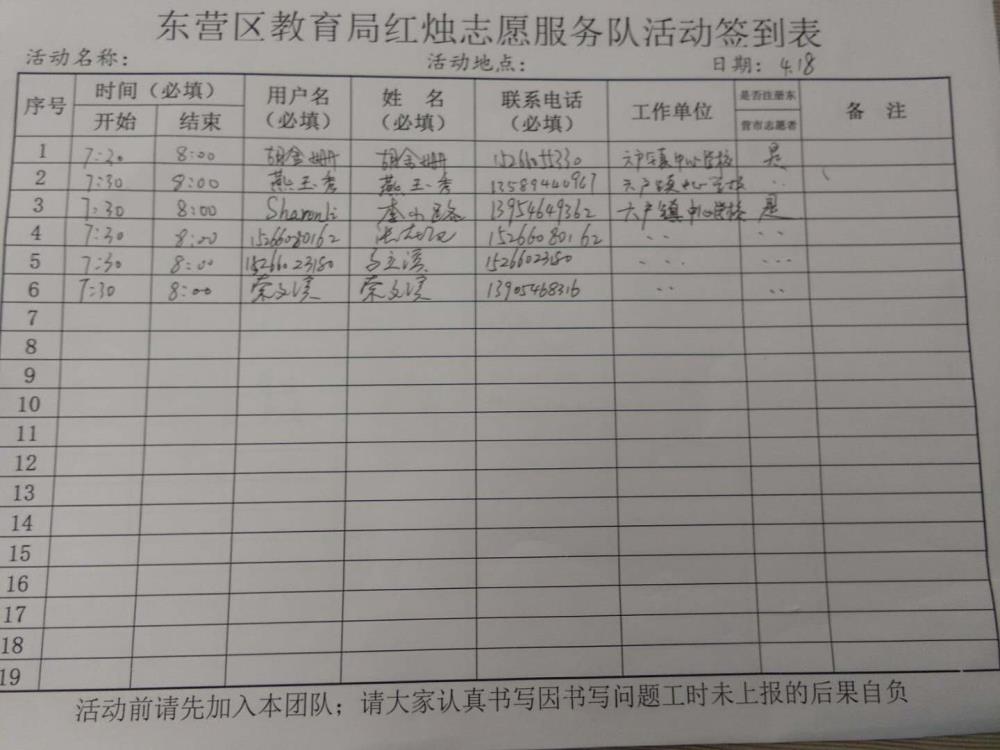 东营区教育局红烛志愿服务队活动签到表
活动名称： 活动地点： 日期：4.18
序号 时间（必填） 用户名（必填） 姓 名（必填） 联系电话（必填） 工作单位 是否注册东营市志愿者 备 注
开始 结束
1 7:30 8:00 胡金姗 胡金姗 六户镇中心学校 是
2 7:30 8:00 燕玉秀 燕玉秀 13589440967 六户镇中心学校 ··
3 7:30 8:00 Sharonli 13954649362 六户镇中心学校 是
4 7:30 8:00 15266080162 15266080162 ·· ···
5 7:30 8:00 15266023180 15266023180 ··· ···
6 7:30 8:00 荣文滨 荣文滨 13905468316 ·· ··
7
8
9
10
11
12
13
14
15
16
17
18
19
活动前请先加入本团队；请大家认真书写因书写问题工时未上报的后果自负